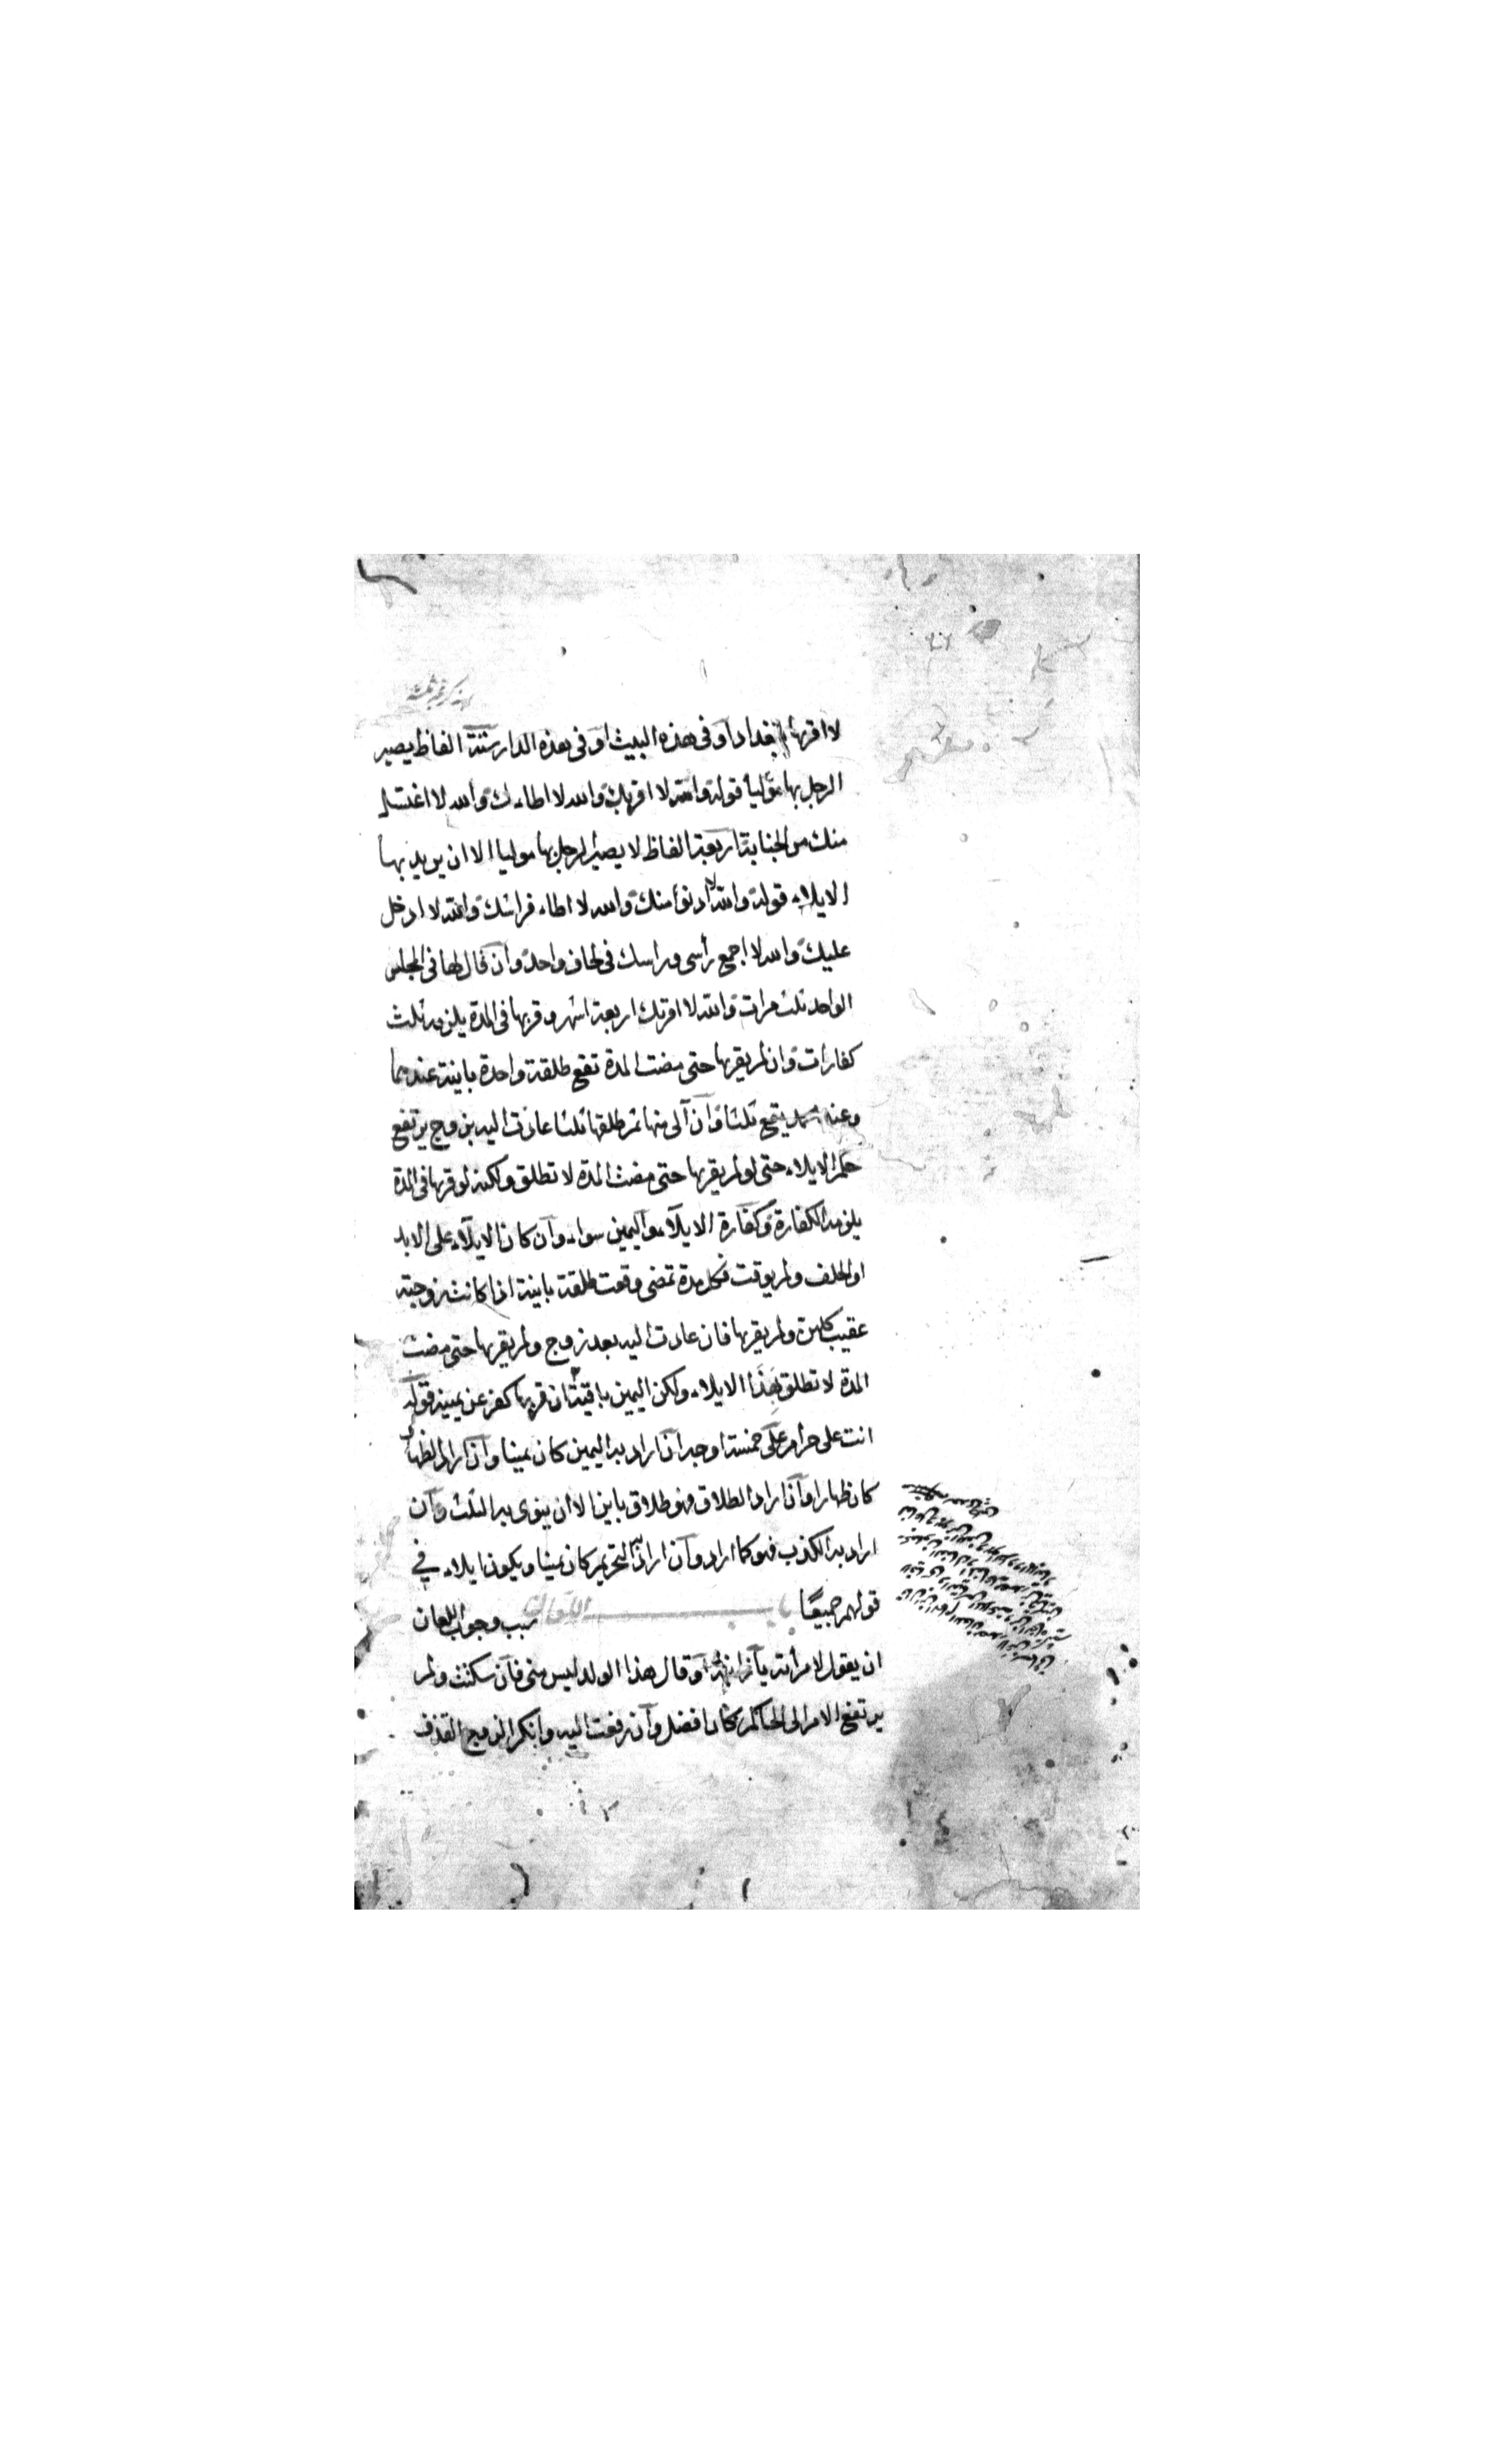 لا اقربها ببغداد او فى هذه البيت او فى هذه الدار ستة الفاظ يصير
الرجل بها موليا قوله والله لا اقربك والله لا اطاءك والله لا اغتسل
منك من الجنابة اربعة الفاظ لا يصير الرجل بها موليا الا ان يريد بها
الايلاء قوله والله لا ادنو منك والله لا اطاء فراشك والله لا ادخل
عليك والله لا اجمع رأسى وراسك فى لحاف واحد وان قال لها فى المجلس
الواحد ثلث مرات والله لا اقربك اربعة اشهر وقربها فى المدة يلزمه ثلث
كفارات وان لم يقربها حتى مضت المدة تقع طلقة واحدة باينة عندهما
وعند محمد يقع ثلثا وان آلى منها ثم طلقها ثلثا عادت اليه بزوج يرتفع
حكم الايلاء حتى لو لم يقربها حتى مضت المدة لا تطلق ولكنه لو قربها فى المدة
يلزمه الكفارة وكفارة الايلاء واليمين سواء وان كان الايلاء على الابد
او الحلف ولم يوقت فكل مدة تمضى وقعت طلقة باينة اذا كانت زوجته
عقيب كلهن ولم يقربها فان عادت اليه بعد زوج ولم يقربها حتى مضت
المدة لا تطلق بهذا الايلاء ولكن اليمين باقية ان قربها كفر عن يمينه قوله
انت على حرام على خمسة اوجه ان اراد به اليمين كان يمينا وان اراد الظهار
كان ظهارا وان اراد الطلاق فهو طلاق باين الا ان ينوى به الثلث وان
اراد به الكذب فهو كما اراد وان اراد به التحريم كان يمينا ويكون ايلاء فى
قولهم جميعًا باب اللعان سبب وجوب اللعان
ان يقول لامرأته يا زانية او قال هذا الولد ليس منى فان سكتت ولم
يرتفع الامر الى الحاكم كان افضل وان رفعت اليه وانكر الزوج القذف